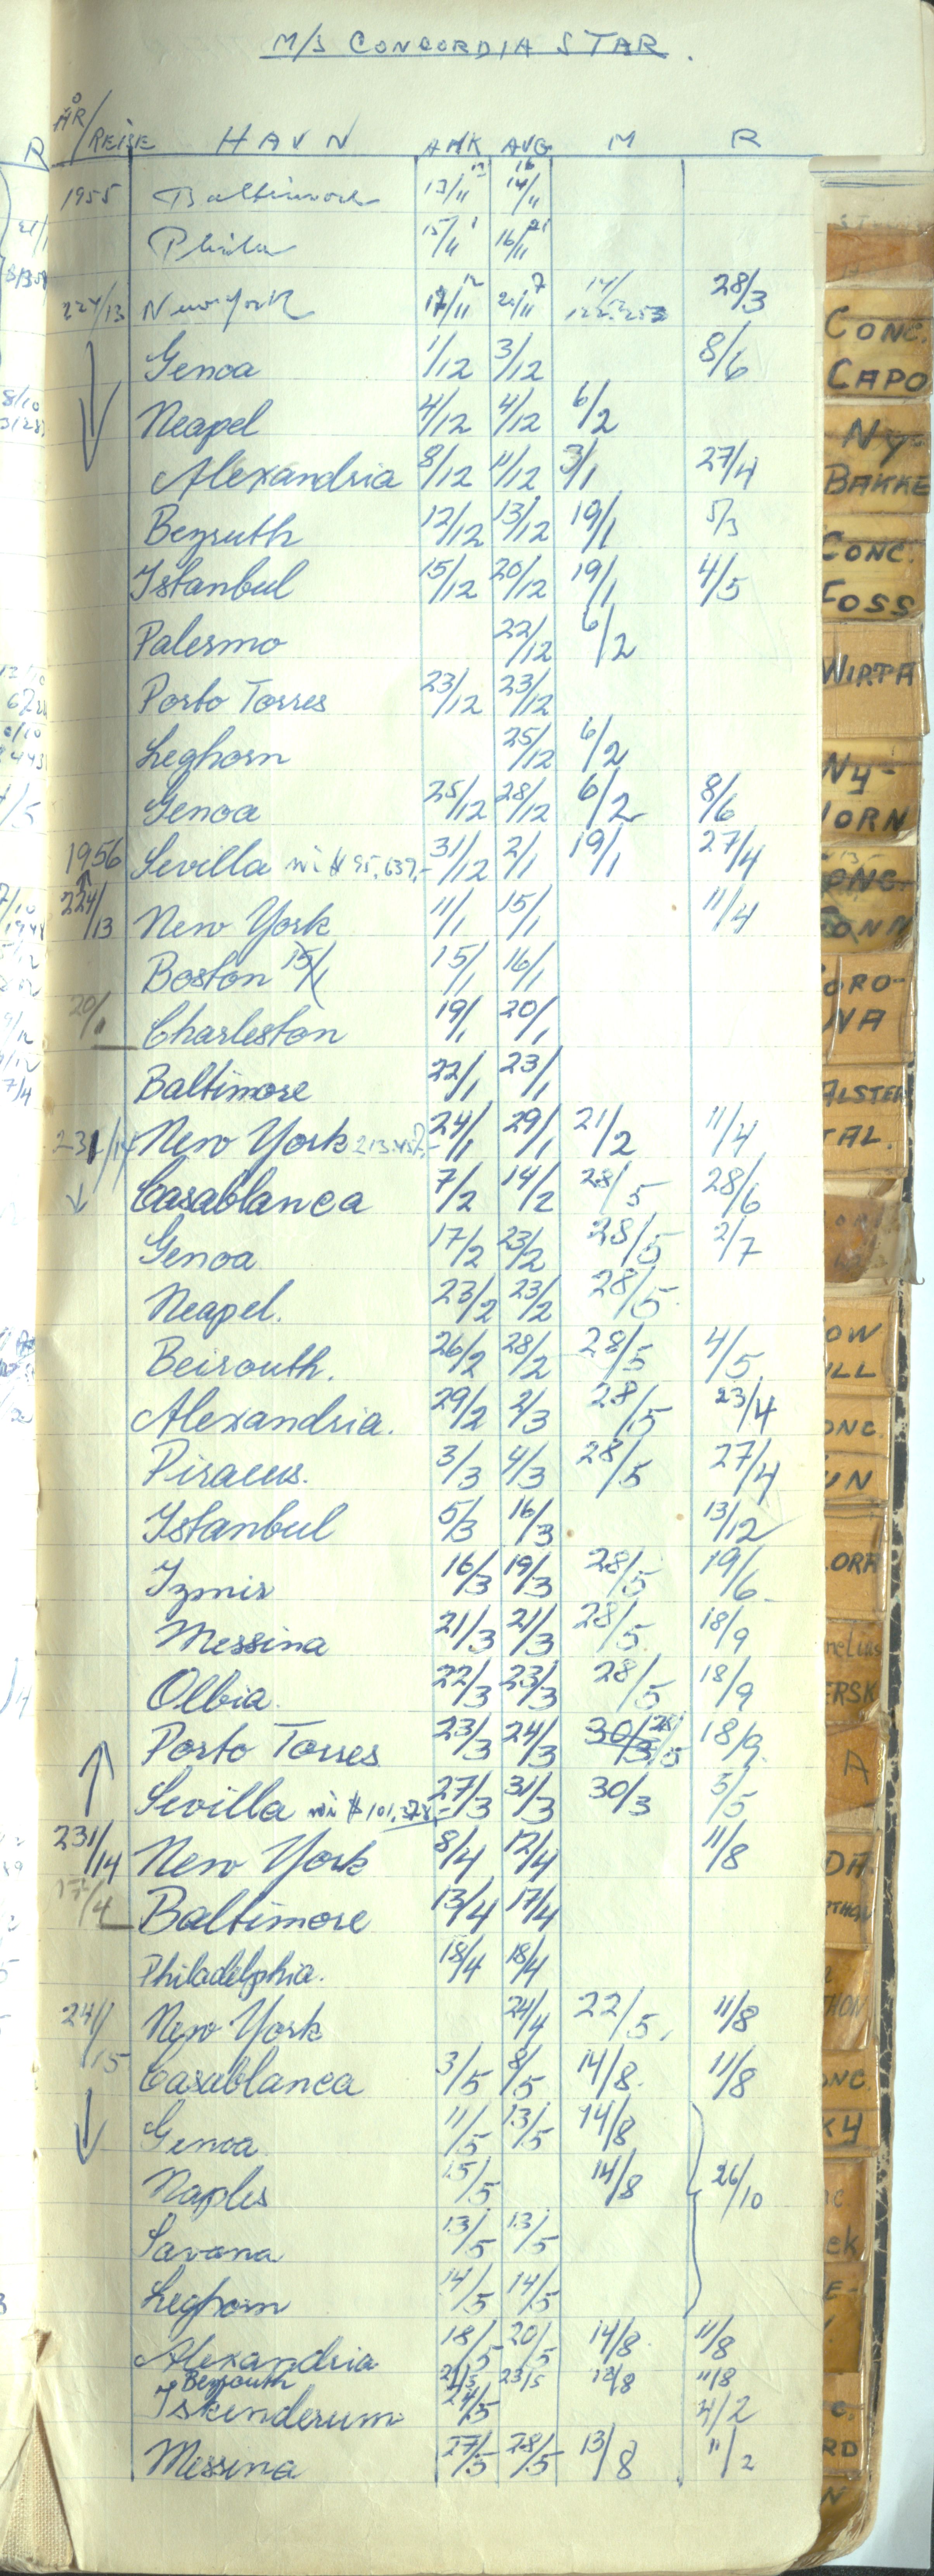 M/S CONCORDIA STAR.
ÅR/REISE HAVN ANK AVG M R
1955 Baltimore 13/11 14/11
Phila 15/11 16/11
224/13 New York 17/11 28/3
Genoa 1/12 3/12 8/6
Neapel 4/12 4/12 6/2
Alexandria 8/12 11/12 3/1 27/4
Beyruth 12/12 13/12 19/1 5/3
Istanbul 15/12 20/12 19/1 4/5
Palermo 22/12 6/2
Porto Torres 23/12 23/12
Leghorn 25/12 6/2
Genoa 25/12 28/12 6/2 8/6
1956 Sevilla $95.637,- 31/12 2/1 19/1 27/4
224/13 New York 11/1 15/1 11/4
Boston 15/1 15/1 16/1
20/1 Charleston 19/1 20/1
Baltimore 22/1 23/1
231/14 New York 24/1 29/1 21/2 11/4
Casablanca 7/2 14/2 28/5 28/6
Genoa 17/2 23/2 28/5 2/7
Neapel. 23/2 23/2 28/5
Beirouth. 26/2 28/2 28/5 4/5
Alexandria. 29/2 2/3 28/5 23/4
Piraeus. 3/3 4/3 28/5 27/4
Istanbul 5/3 16/3 13/12
Izmir 16/3 19/3 28/5 19/6
Messina 21/3 21/3 28/5 18/9
Olbia 22/3 23/3 28/5 18/9
Porto Torres 23/3 24/3 30/3 28/5 18/9
Sevilla $101.328,- 27/3 31/3 30/3 5/5
231/14 New York 8/4 12/4 11/8
17/4 Baltimore 13/4 17/4
Philadelphia. 18/4 18/4
241/15 New York 24/4 22/5. 11/8
Casablanca 3/5 8/5 14/8. 11/8
Genoa 11/5 13/5 14/8
Naples 15/5 14/8 26/10
Savona 13/5 13/5
Leghorn 14/5 14/5
Alexandria 18/5 20/5 14/8. 11/8
Beyrouth 21/5 23/5 12/8 11/8
Iskenderum 24/5 4/2
Messina 27/5 28/5 13/8 11/2
CONC.
CAPO
NY-
BAKKE
CONC.
FOSS
WIRTA
NY-
HORN
CORO-
NA
ALSTER
TAL.